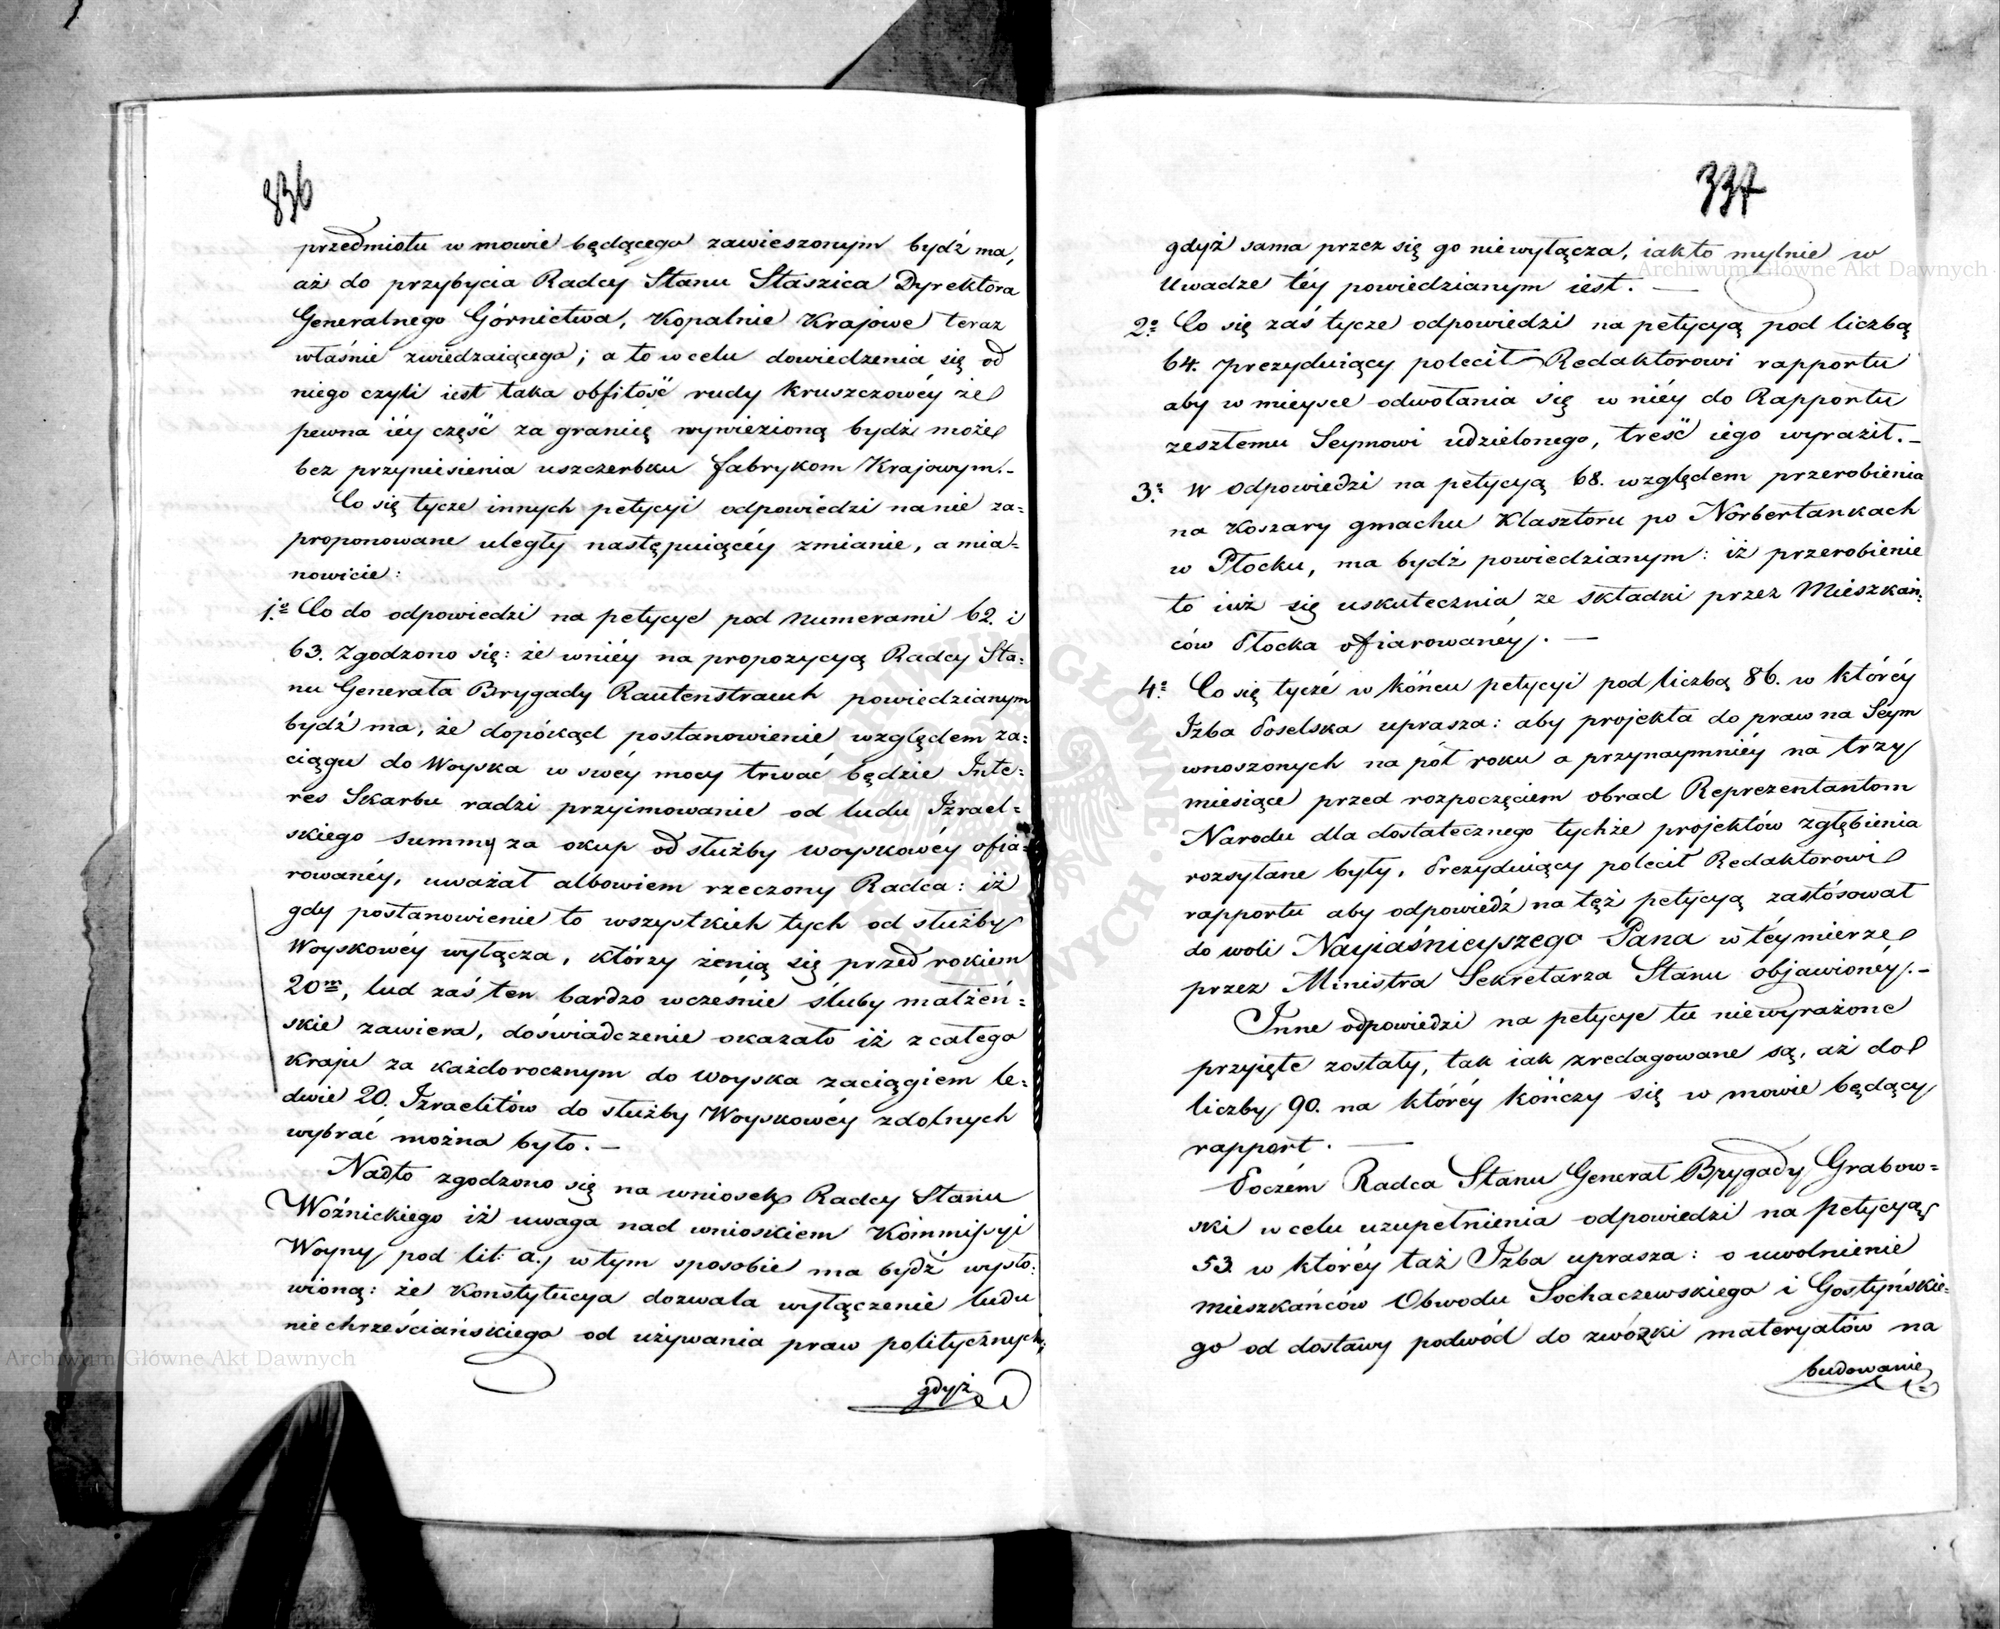 336
przedmiotu w mowie będącego zawieszonym bydź ma,
aż do przybycia Radcy Stanu Staszica Dyrektora
Generalnego Górnictwa, Kopalnie Krajowe teraz
właśnie zwiedzaiącego; a to w celu dowiedzenia się od
niego czyli iest taka obfitość rudy kruszczowéy że
pewna iéy część za granicę wywiezioną bydź może
bez przyniesienia uszczerbku fabrykom Krajowym.-
Co się tycze innych petycyi odpowiedzi na nie za=
proponowane uległy następuiącéy zmianie, a mia=
nowicie:
1.º Co do odpowiedzi na petycye pod numerami 62. i
63. Zgodzono się: że w niéy na propozycyą Radcy Sta=
nu Generała Brygady Rautenstrauch powiedzianym
bydź ma, że dopókąd postanowienie względem za=
ciągu do Woyska w swéy mocy trwać będzie Inte=
res Skarbu radzi przyimowanie od ludu Izrael=
skiego summy za okup od służby woyskowéy ofia=
rowanéy, uważał albowiem rzeczony Radca: iż
gdy postanowienie to wszystkich tych od służby
Woyskowéy wyłącza, którzy żenią się przed rokiem
20m, lud zaś ten bardzo wcześnie śluby małżeń=
skie zawiera, doświadczenie okazało iż z całego
kraju za każdorocznym do Woyska zaciągiem le=
dwie 20. Izraelitów do służby Woyskowéy zdolnych
wybrać można było. —
Nadto zgodzono się na wniosek Radcy Stanu
Woźnickiego iż uwaga nad wnioskiem Kommissyi
Woyny pod lit: a., w tym sposobie ma bydź wysło=
wioną: że Konstytucya dozwala wyłączenie ludu
niechrześciańskiego od używania praw politycznych,
gdyż
337
gdyż sama przez się go nie wyłącza, iak to mylnie w
Uwadze téy powiedzianym iest. —
2º Co się zaś tycze odpowiedzi na petycyą pod liczbą
64. Prezyduiący polecił Redaktorowi rapportu
aby w mieysce odwołania się w niéy do Rapportu
zeszłemu Seymowi udzielonego, treść iego wyraził.-
3º W odpowiedzi na petycyą 68. względem przerobienia
na Koszary gmachu Klasztoru po Norbertankach
w Płocku, ma bydź powiedzianym: iż przerobienie
to iuż się uskutecznia ze składki przez Mieszkań=
ców Płocka ofiarowanéy. —
4º Co się tyczé w końcu petycyi pod liczbą 86. w któréy
Izba Poselska uprasza: aby projekta do praw na Seym
wnoszonych na pół roku a przynaymniéy na trzy
miesiące przed rozpoczęciem obrad Reprezentantom
Narodu dla dostatecznego tychże projektów zgłębienia
rozsyłane były, Prezyduiący polecił Redaktorowi
rapportu aby odpowiedź na też petycyą zastósował
do woli Nayiaśnieyszego Pana w téy mierze
przez Ministra Sekretarza Stanu objawionéy.-
Inne odpowiedzi na petycye tu niewyrażone
przyięte zostały, tak iak zredagowane są, aż do
liczby 90. na któréy kończy się w mowie będący
rapport. —
Poczém Radca Stanu Generał Brygady Grabow=
ski w celu uzupełnienia odpowiedzi na petycyą
53. w któréy taż Izba uprasza: o uwolnienie
mieszkańców Obwodu Sochaczewskiego i Gostyńskie=
go od dostawy podwód do zwózki materyałów na
budowanie
Archiwum Główne Akt Dawnych
Archiwum Główne Akt Dawnych
ARCHIWUM GŁÓWNE AKT DAWNYCH